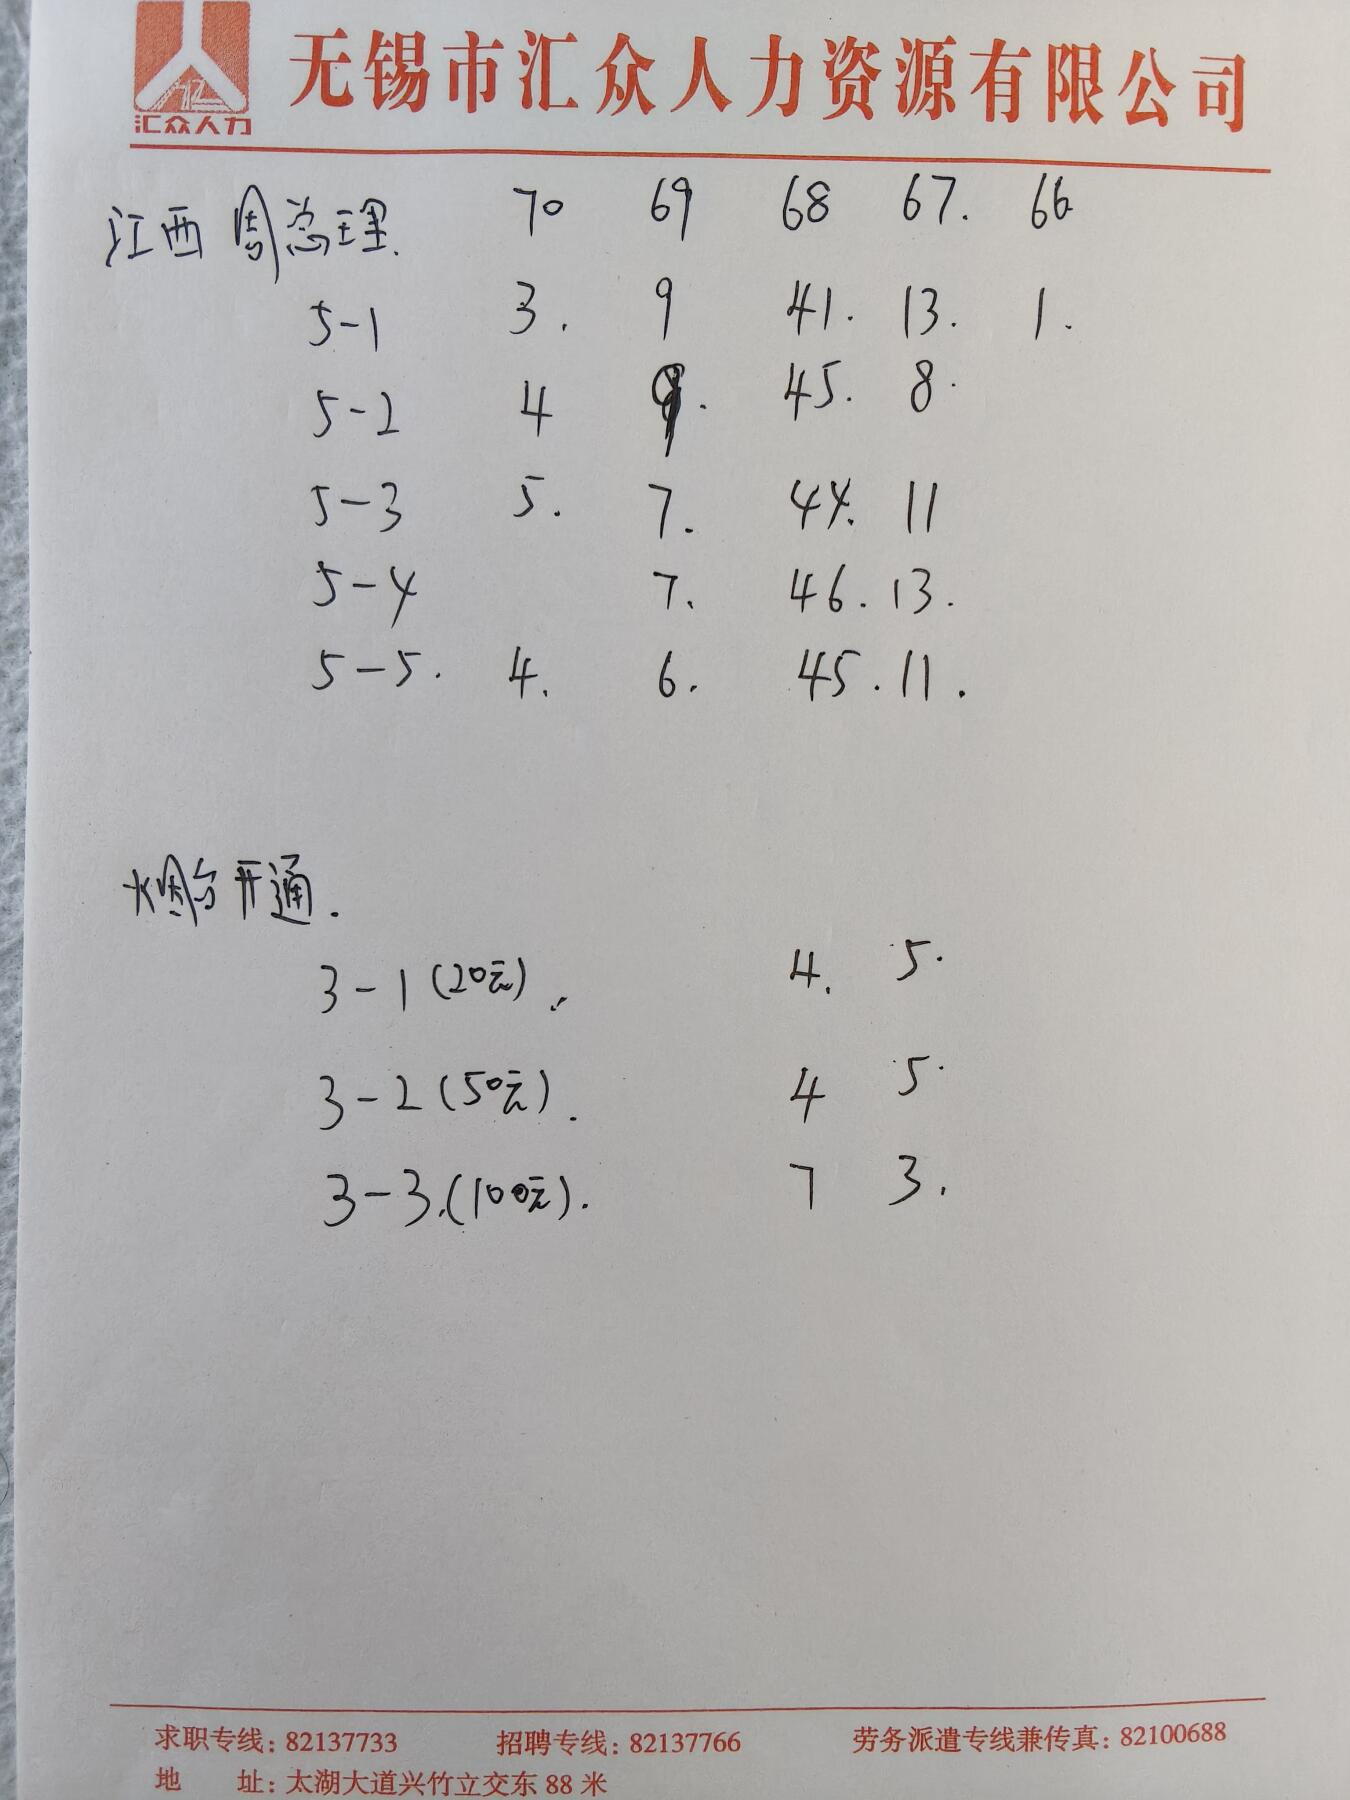 汇众人力
无锡市汇众人力资源有限公司
江西 周总理. 70 69 68 67. 66
5-1 3. 9 41. 13. 1.
5-2 4 9. 45. 8.
5-3 5. 7. 44. 11
5-4 7. 46. 13.
5-5. 4. 6. 45. 11.
烟台开通.
3-1 (20元). 4. 5.
3-2 (50元). 4 5.
3-3.(100元). 7 3.
求职专线: 82137733 招聘专线: 82137766 劳务派遣专线兼传真: 82100688
地 址: 太湖大道兴竹立交东 88 米